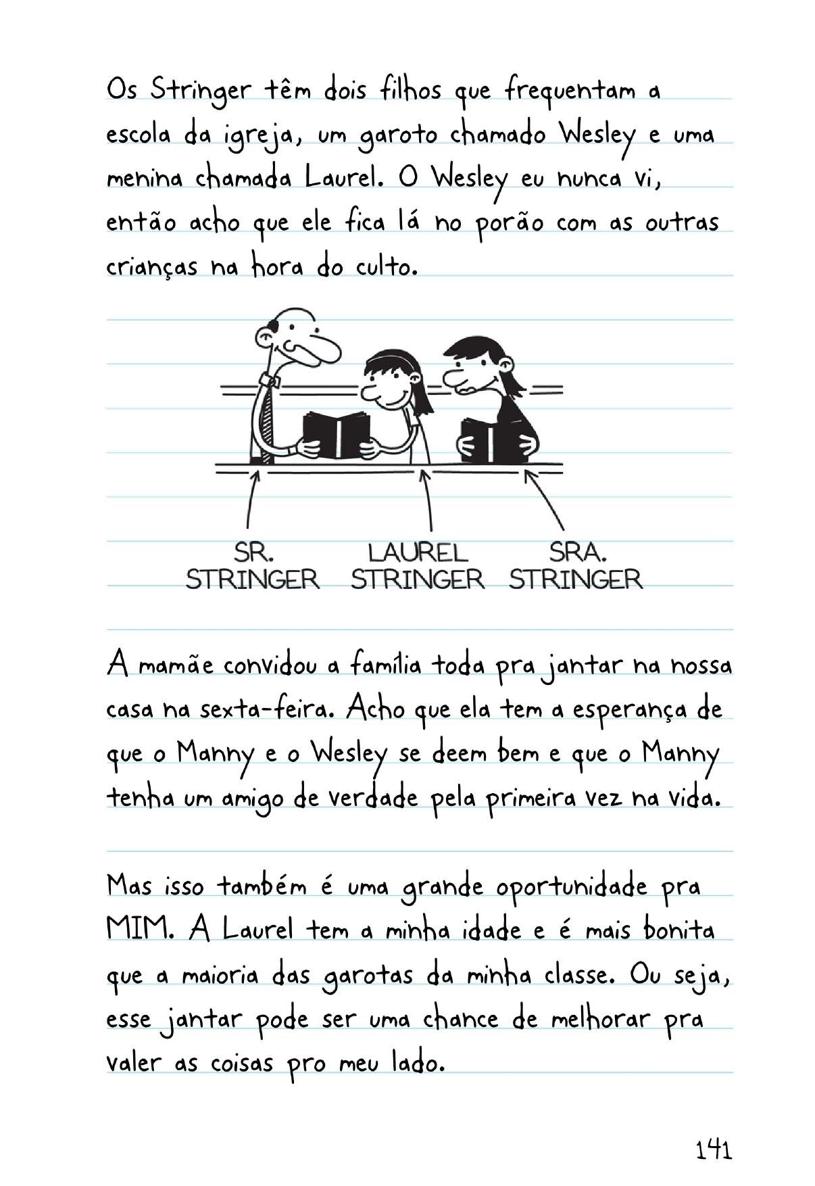 Os Stringer têm dois filhos que frequentam a
escola da igreja, um garoto chamado Wesley e uma
menina chamada Laurel. O Wesley eu nunca vi,
então acho que ele fica lá no porão com as outras
crianças na hora do culto.
SR.
STRINGER
LAUREL
STRINGER
SRA.
STRINGER
A mamãe convidou a família toda pra jantar na nossa
casa na sexta-feira. Acho que ela tem a esperança de
que o Manny e o Wesley se deem bem e que o Manny
tenha um amigo de verdade pela primeira vez na vida.
Mas isso também é uma grande oportunidade pra
MIM. A Laurel tem a minha idade e é mais bonita
que a maioria das garotas da minha classe. Ou seja,
esse jantar pode ser uma chance de melhorar pra
valer as coisas pro meu lado.
141